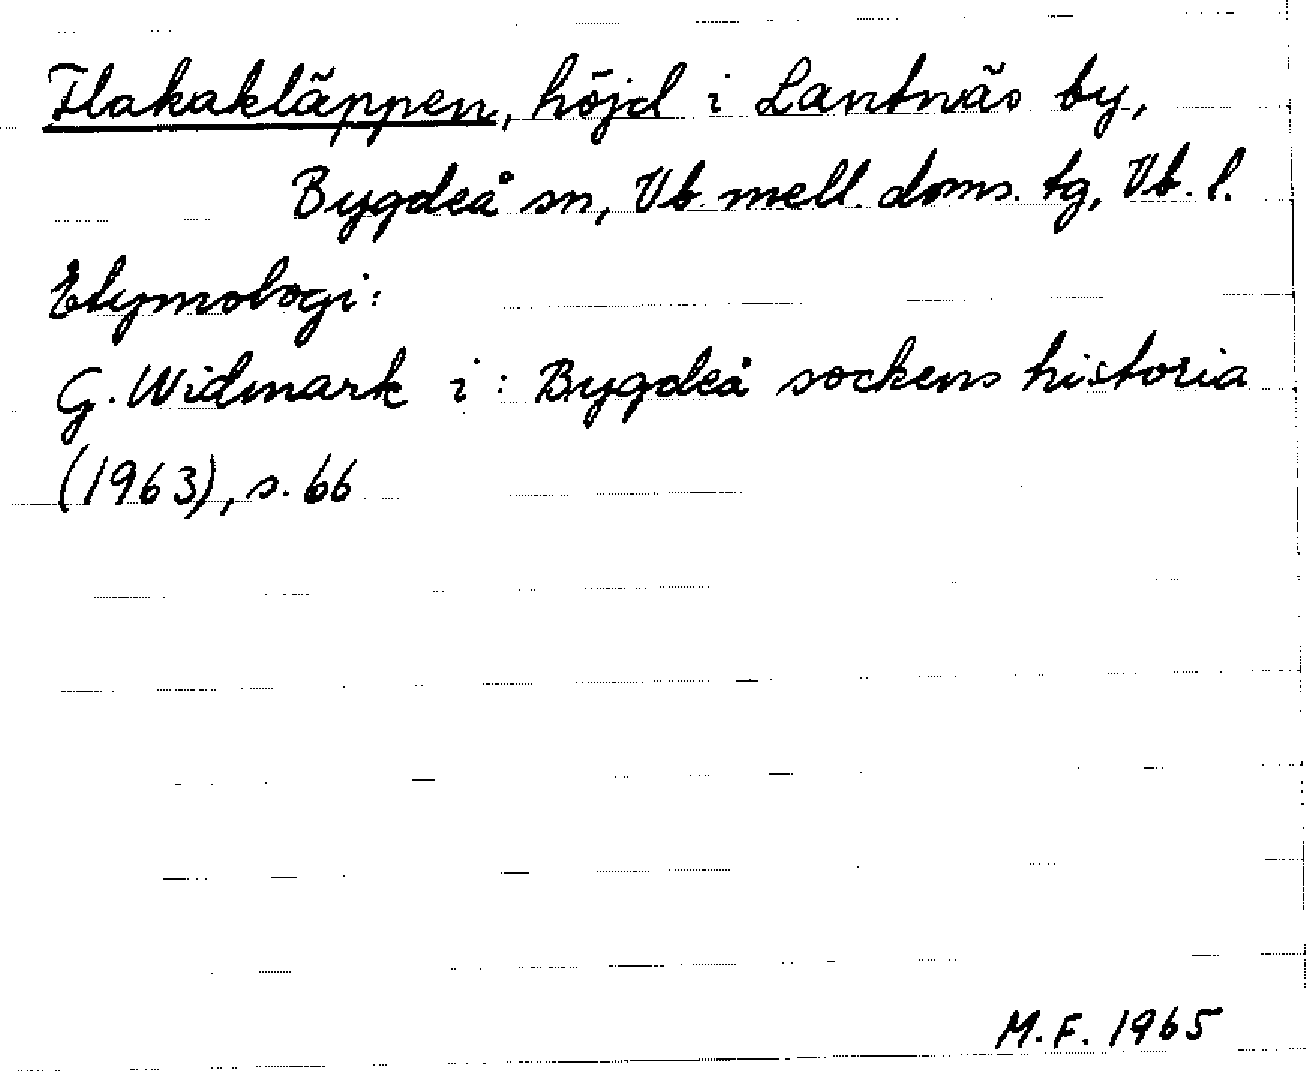 Flakakläppen, höjd i Lantnäs by,
Bygdeå sn, Vb. mell. doms. tg, Vb. l.
Etymologi:
G. Widmark i: Bygdeå sockens historia
(1963), s. 66
M.F. 1965